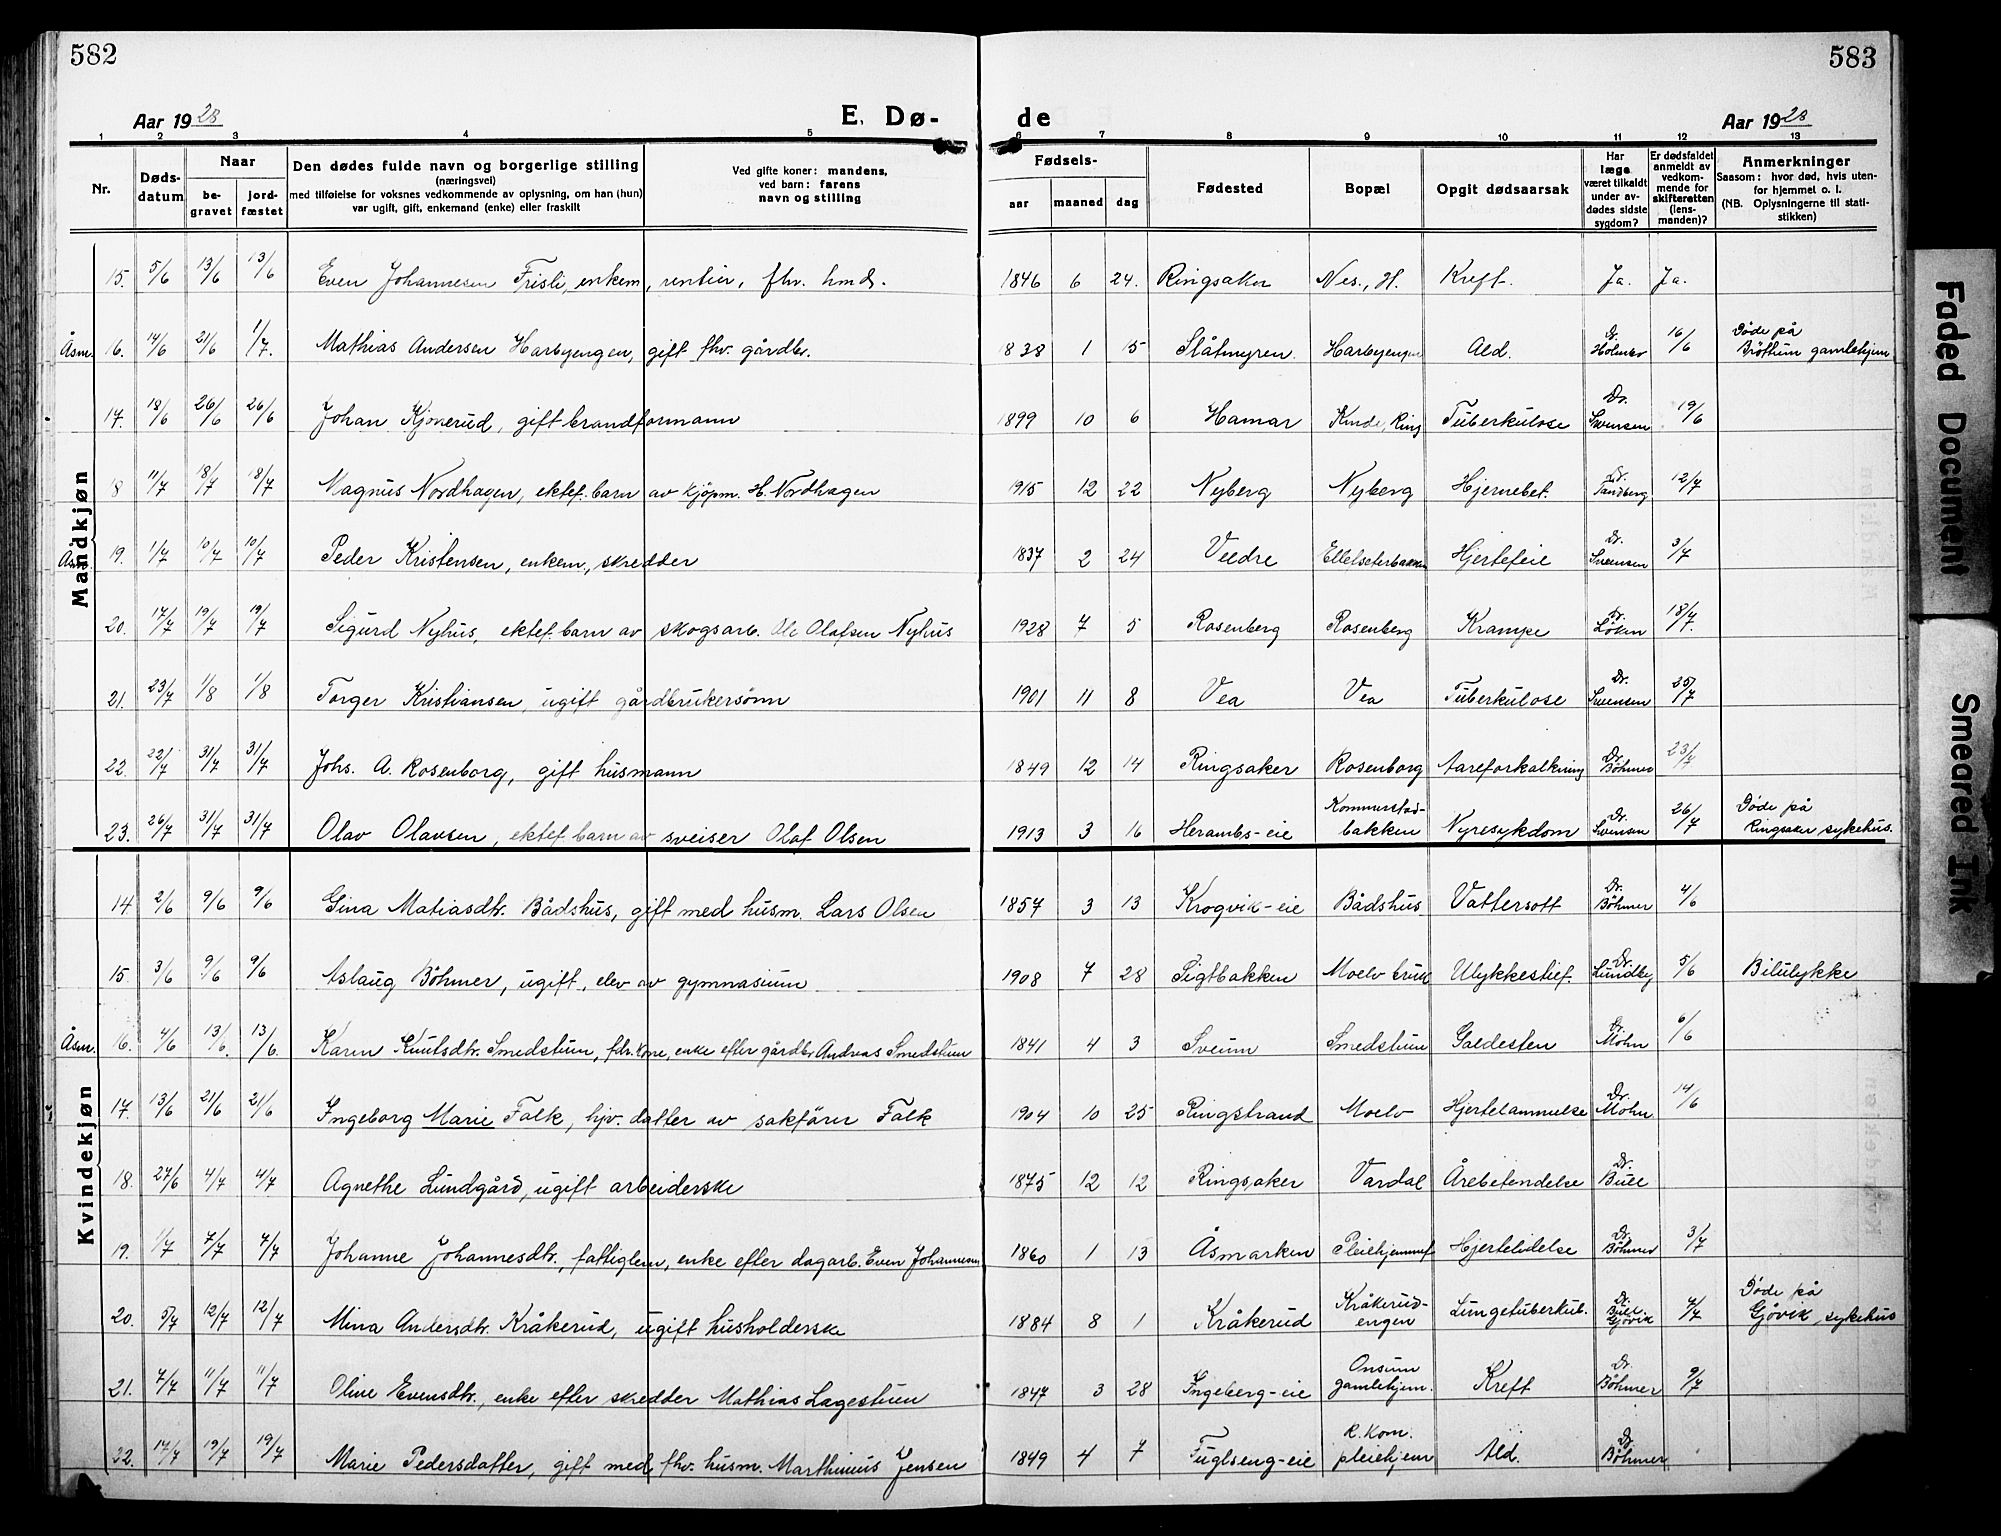 582
583
Aar 1928
E. Dø-
de
Aar 1928
1 2 3 4 5 6 7 8 9 10 11 12 13
Nr.
Døds-
datum
Naar
be-
gravet
jord-
fæstet
Den dødes fulde navn og borgerlige stilling
(næringsvei)
med tilføielse for voksnes vedkommende av oplysning, om han (hun)
var ugift, gift, enkemand (enke) eller fraskilt
Ved gifte koner: mandens,
ved barn: farens
navn og stilling
Fødsels-
aar maaned dag
Fødested
Bopæl
Opgit dødsaarsak
Har
læge
været tilkaldt
under av-
dødes sidste
sygdom?
Er dødsfaldet
anmeldt av
vedkom-
mende for
skifteretten
(lens-
manden)?
Anmerkninger
Saasom: hvor død, hvis uten-
for hjemmet o. l.
(NB. Oplysningerne til stati-
stikken)
Mandkjøn
15. 5/6 13/6 13/6 Even Johannesen Frisli, enkem, rentier, fhv. hmd. 1846 6 24. Ringsaker Nes, H. Kreft. Ja. Ja.
Åsm. 16. 14/6 21/6 1/7. Mathias Andersen Harbyengen, gift fhv. gårdbr. 1838 1 15 Slåtmyren. Harbyengen Ald. Dr. Holmbo 16/6 Døde på Brøttum gamlehjem
17. 18/6 26/6 26/6 Johan Kjonerud, gift brandformann 1899 10 6 Hamar Kinde, Ring Tuberkulose Dr. Svensen 19/6
8 11/7 18/7 18/7 Magnus Nordhagen, ektef. barn av kjøpm. H. Nordhagen 1915 12 22 Nyberg Nyberg Hjernebet. Dr. Sandberg 12/7
19. 1/7 10/7 10/7 Peder Kristensen, enkem., skredder 1837 2 24 Veldre Ellelseterbakken Hjertefeil Dr. Svensen 3/7
20. 17/7 19/7 19/7 Sigurd Nyhus, ektef. barn av skogsarb. Ole Olafsen Nyhus 1928 7 5 Rosenberg Rosenberg Krampe Dr. Løken 18/7.
21. 23/7 1/8 1/8 Torger Kristiansen, ugift gårdbrukersønn 1901 11 8 Vea Vea Tuberkulose Dr. Svensen 25/7
22. 22/7 31/7 31/7 Johs. A. Rosenborg, gift husmann 1849 12 14 Ringsaker Rosenborg Aareforkalkning Dr. Böhmer 23/7
23. 26/7 31/7 31/7 Olav Olavsen, ektef. barn av sveiser Olaf Olsen 1913 3 16 Herambs-eie Kommerstad-bakken Nyresykdom Dr. Svensen 26/7 Døde på Ringsaker sykehus.
Kvindekjøn
14 2/6 9/6 9/6 Gina Matiasdtr. Bådshus, gift med husm. Lars Olsen 1857 3 13 Krogvik-eie Bådshus Vattersott Dr. Böhmer 4/6
15. 3/6 9/6 9/6 Aslaug Böhmer, ugift, elev av gymnasium 1908 7 28 Sigtbakken Moelv bruk Ulykkestilf. Dr. Lundby 5/6 Bilulykke
Åsm. 16. 4/6 13/6. 13/6. Karen Knutsdtr. Smedstuen, fdr. kone, enke efter gårdbr. Andreas Smedstuen 1841 4 3 Sveum Smedstuen Galdesten Dr. Mohn 6/6
17. 13/6 21/6 21/6 Ingeborg Marie Falk, hjv. datter av sakfører Falk 1904 10 25 Ringstrand Moelv Hjertelammelse Dr. Mohn 14/6
18. 27/6 4/7 4/7 Agnethe Lundgård, ugift arbeiderske 1875 12 12 Ringsaker Vardal Årebetendelse Dr. Bull
19. 1/7 7/7 7/7 Johanne Johannesdtr., fattiglem, enke efter dagarb. Even Johannesen 1860 1 13 Åsmarken Pleiehjemmet Hjertelidelse Dr. Böhmer 3/7
20. 5/7 12/7 12/7 Mina Andersdtr. Kråkerud, ugift husholderske 1884 8 1 Kråkerud Kråkerud-engen Lungetuberkul. Dr. Bull. Gjøvik 7/7 Døde på Gjøvik sykehus
21. 7/7 11/7 11/7 Oline Evensdtr., enke efter skredder Mathias Lagestuen 1847 3 28 Ingeberg-eie Onsum gamlehjem. Kreft Dr. Böhmer 9/7
22. 14/7 19/7 19/7 Marie Pedersdatter, gift med fhv. husm. Marthinius Jensen 1849 4 7 Fuglseng-eie R. kom. pleiehjem Ald. Dr. Böhmer
Faded Document
Smeared Ink